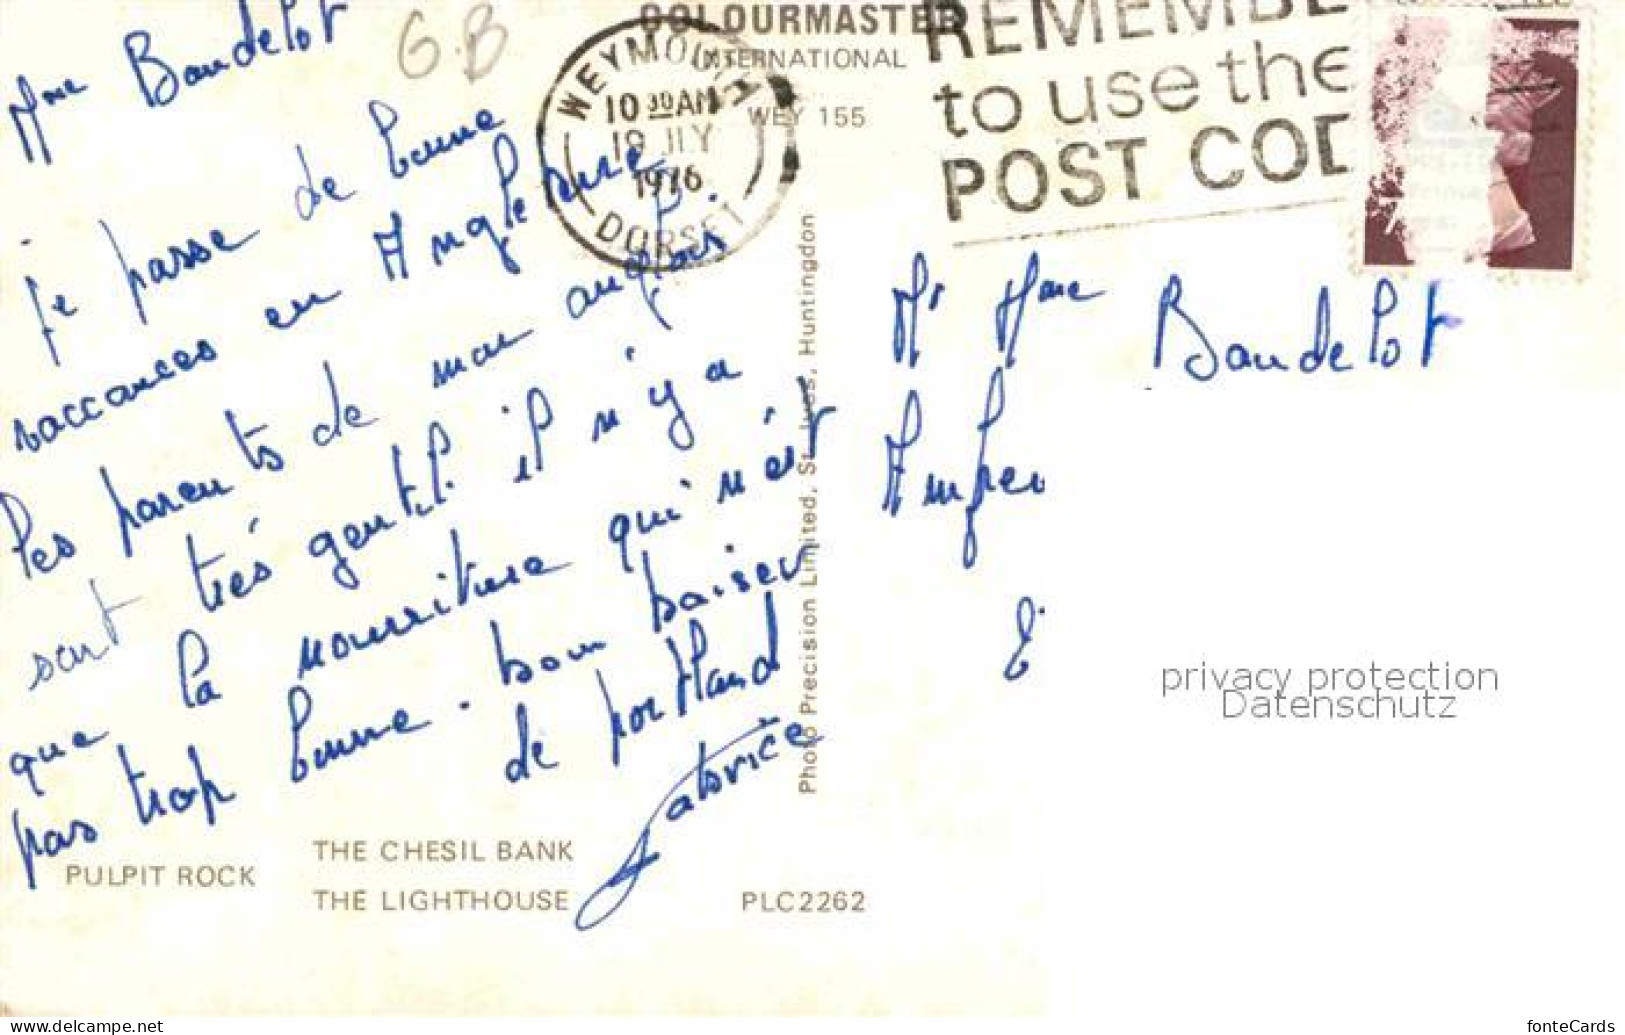 Mme Baudelot
je passe de bonne
vaccances en Angleterre
les parents de mon anglais
sont trés gentil il n'y a
que la nourriture qui n'est
pas trop bonne. bon baiser
de portland
G.B
COLOURMASTER
INTERNATIONAL
WEY 155
WEYMOUTH
10 30 AM
19 JLY
1976
DORSET
REMEMBE
to use the
POST COD
Photo Precision Limited, St. Ives, Huntingdon
Mr Mme Baudelot
E
privacy protection
Datenschutz
PULPIT ROCK
THE CHESIL BANK
THE LIGHTHOUSE
PLC2262
www.delcampe.net
fonteCards